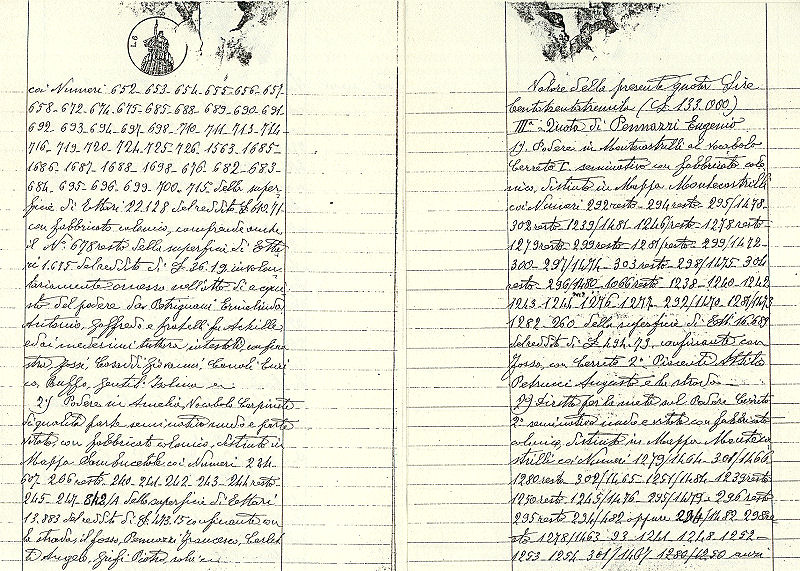 L6
coi Numeri 652-653-654-655-656-657
658-672-674-675-685-688-689-690-691
692-693-694-697-698-710-711-713-714
716-719-720-724-725-726-1563-1685-
1686-1687-1688-1698-676-682-683-
684-695-696-699-700-715 della super
ficie di Ettari 22.128 del reddito £ 610.71
con fabbricato colonico, comprende anche
il N° 678 resto della superficie di Etta
ri 1.615 del reddito di £ 36.19 involon
tariamente omesso nell'atto di acqui
sto del podere da Petrignani Ermelinda
Antonio, Goffredo e fratelli fu Achille
e dai medesimi tuttora intestato, confina
Fossi, Conti Giovanni, Consoli Enri
co, Ruffo, Gentili
2) Podere in Amelia, Vocabolo Carpinete
di qualità parte seminativo nudo e parte
vitato con fabbricato colonico, distinto in
Mappa Sambucetole coi Numeri 234
607-206 resto-240-241-242-243-244 resto
245-247-842/1 della superficie di Ettari
13.883 del reddito di £ 413.15 confinante con
la strada, il fosso, Pennazzi Francesco, Carlet
ti Angelo, Grifi Pietro, salvi
Valore della presente quota Lire
Centotrentatremila (£ 133.000)
IIIª Quota di Pennazzi Eugenio
1) Podere in Montecastrilli al vocabolo
Cerreto I. seminativo con fabbricato colo
nico, distinto in Mappa Montecastrilli
coi Numeri 292 resto-294 resto-295/1478
302 resto-1239/1481-1246/resto-1278 resto-
1279 resto-299 resto-1281/resto-299/1472-
300-297/1474-303 resto-298/1475-304
resto-296/1480-1066 resto-1238-1240-1242
1243-1244-1076-1277-292/1470-1281/1473
1282-260 della superficie di Ett. 16.689
del reddito di £ 494.73, confinante con
fosso, con Cerreto 2° Piacenti Attilio
Petrucci Augusto e la strada
2) Diretta per la metà sul Podere Cerreto
2° seminativo nudo e vitato con fabbricato
colonico, distinto in Mappa Monteca
strilli coi Numeri 1279/1464-301/1466
1280 resto-302/1465-1251/1484-1239 resto
1250 resto-1245/1476-295/1479-296 resto
295 resto-294/482 oppure 294/1482-298 re
sto-1278/1463-93-1241-1248-1252-
1253-1254-301/1467-1280/1250 anzi